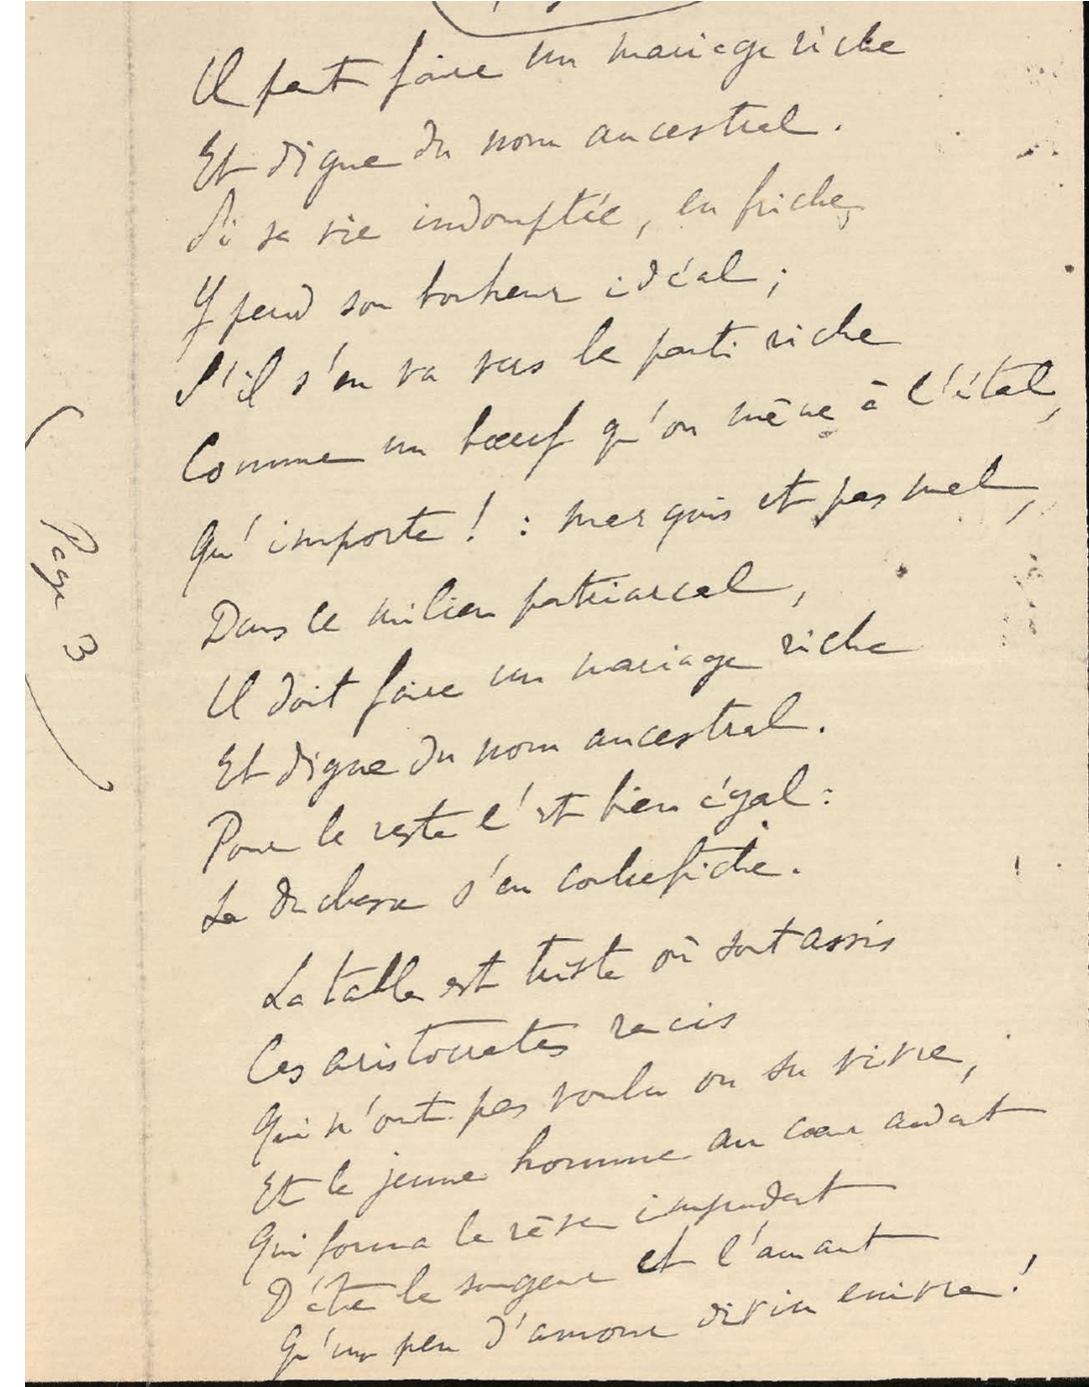 Il faut faire un mariage riche
Et digne du nom ancestral.
Si sa vie indomptée, en friche,
Y perd son bonheur idéal ;
S'il s'en va vers le parti riche
Comme un bœuf qu'on mène à l'étal,
Qu'importe ! : marquis et pas mal,
Dans ce milieu patriarcal,
Il doit faire un mariage riche
Et digne du nom ancestral.
Pour le reste c'est bien égal :
La duchesse s'en contrefiche.
La table est triste où sont assis
Ces aristocrates racis
Qui n'ont pas voulu ou su vivre,
Et le jeune homme au cœur ardent
Qui forma le rêve impudent
D'être le songeur et l'amant
Qu'un peu d'amour divin enivre !
Page 3